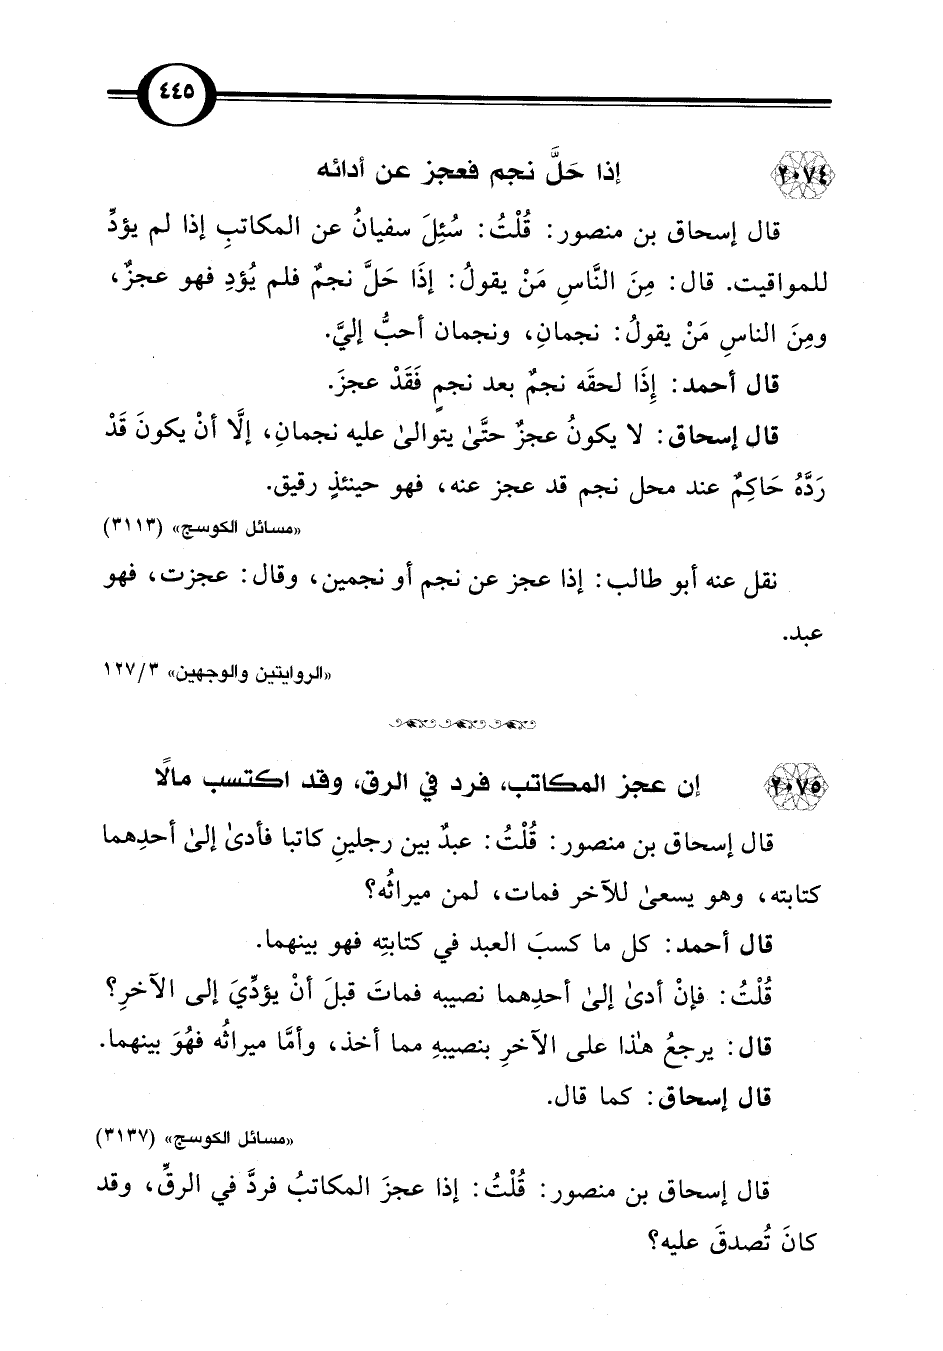 ٤٤٥
٢٠٧٤ إذا حَلَّ نجم فعجز عن أدائه
قال إسحاق بن منصور: قُلْتُ: سُئِلَ سفيانُ عن المكاتبِ إذا لم يؤدِّ
للمواقيت. قال: مِنَ النَّاسِ مَنْ يقولُ: إذَا حَلَّ نجمٌ فلم يُؤدِ فهو عجزٌ،
ومِنَ الناسِ مَنْ يقولُ: نجمانِ، ونجمان أحبُّ إليَّ.
قال أحمد: إِذَا لحقَه نجمٌ بعد نجمٍ فَقَدْ عجزَ.
قال إسحاق: لا يكونُ عجزٌ حتَّىٰ يتوالىٰ عليه نجمانِ، إلَّا أنْ يكونَ قَدْ
رَدَّهُ حَاكِمٌ عند محل نجم قد عجز عنه، فهو حينئذٍ رقيق.
«مسائل الكوسج» (٣١١٣)
نقل عنه أبو طالب: إذا عجز عن نجم أو نجمين، وقال: عجزت، فهو
عبد.
«الروايتين والوجهين» ٣/ ١٢٧
٢٠٧٥ إن عجز المكاتب، فرد في الرق، وقد اكتسب مالًا
قال إسحاق بن منصور: قُلْتُ: عبدٌ بين رجلينِ كاتبا فأدىٰ إلىٰ أحدِهما
كتابته، وهو يسعىٰ للآخر فمات، لمن ميراثُه؟
قال أحمد: كل ما كسبَ العبد في كتابتِه فهو بينهما.
قُلْتُ: فإنْ أدىٰ إلىٰ أحدِهما نصيبه فماتَ قبلَ أنْ يؤدِّيَ إلى الآخرِ؟
قال: يرجعُ هـٰذا على الآخرِ بنصيبهِ مما أخذ، وأمَّا ميراثُه فهُوَ بينهما.
قال إسحاق: كما قال.
«مسائل الكوسج» (٣١٣٧)
قال إسحاق بن منصور: قُلْتُ: إذا عجزَ المكاتبُ فردَّ في الرقِّ، وقد
كانَ تُصدقَ عليه؟